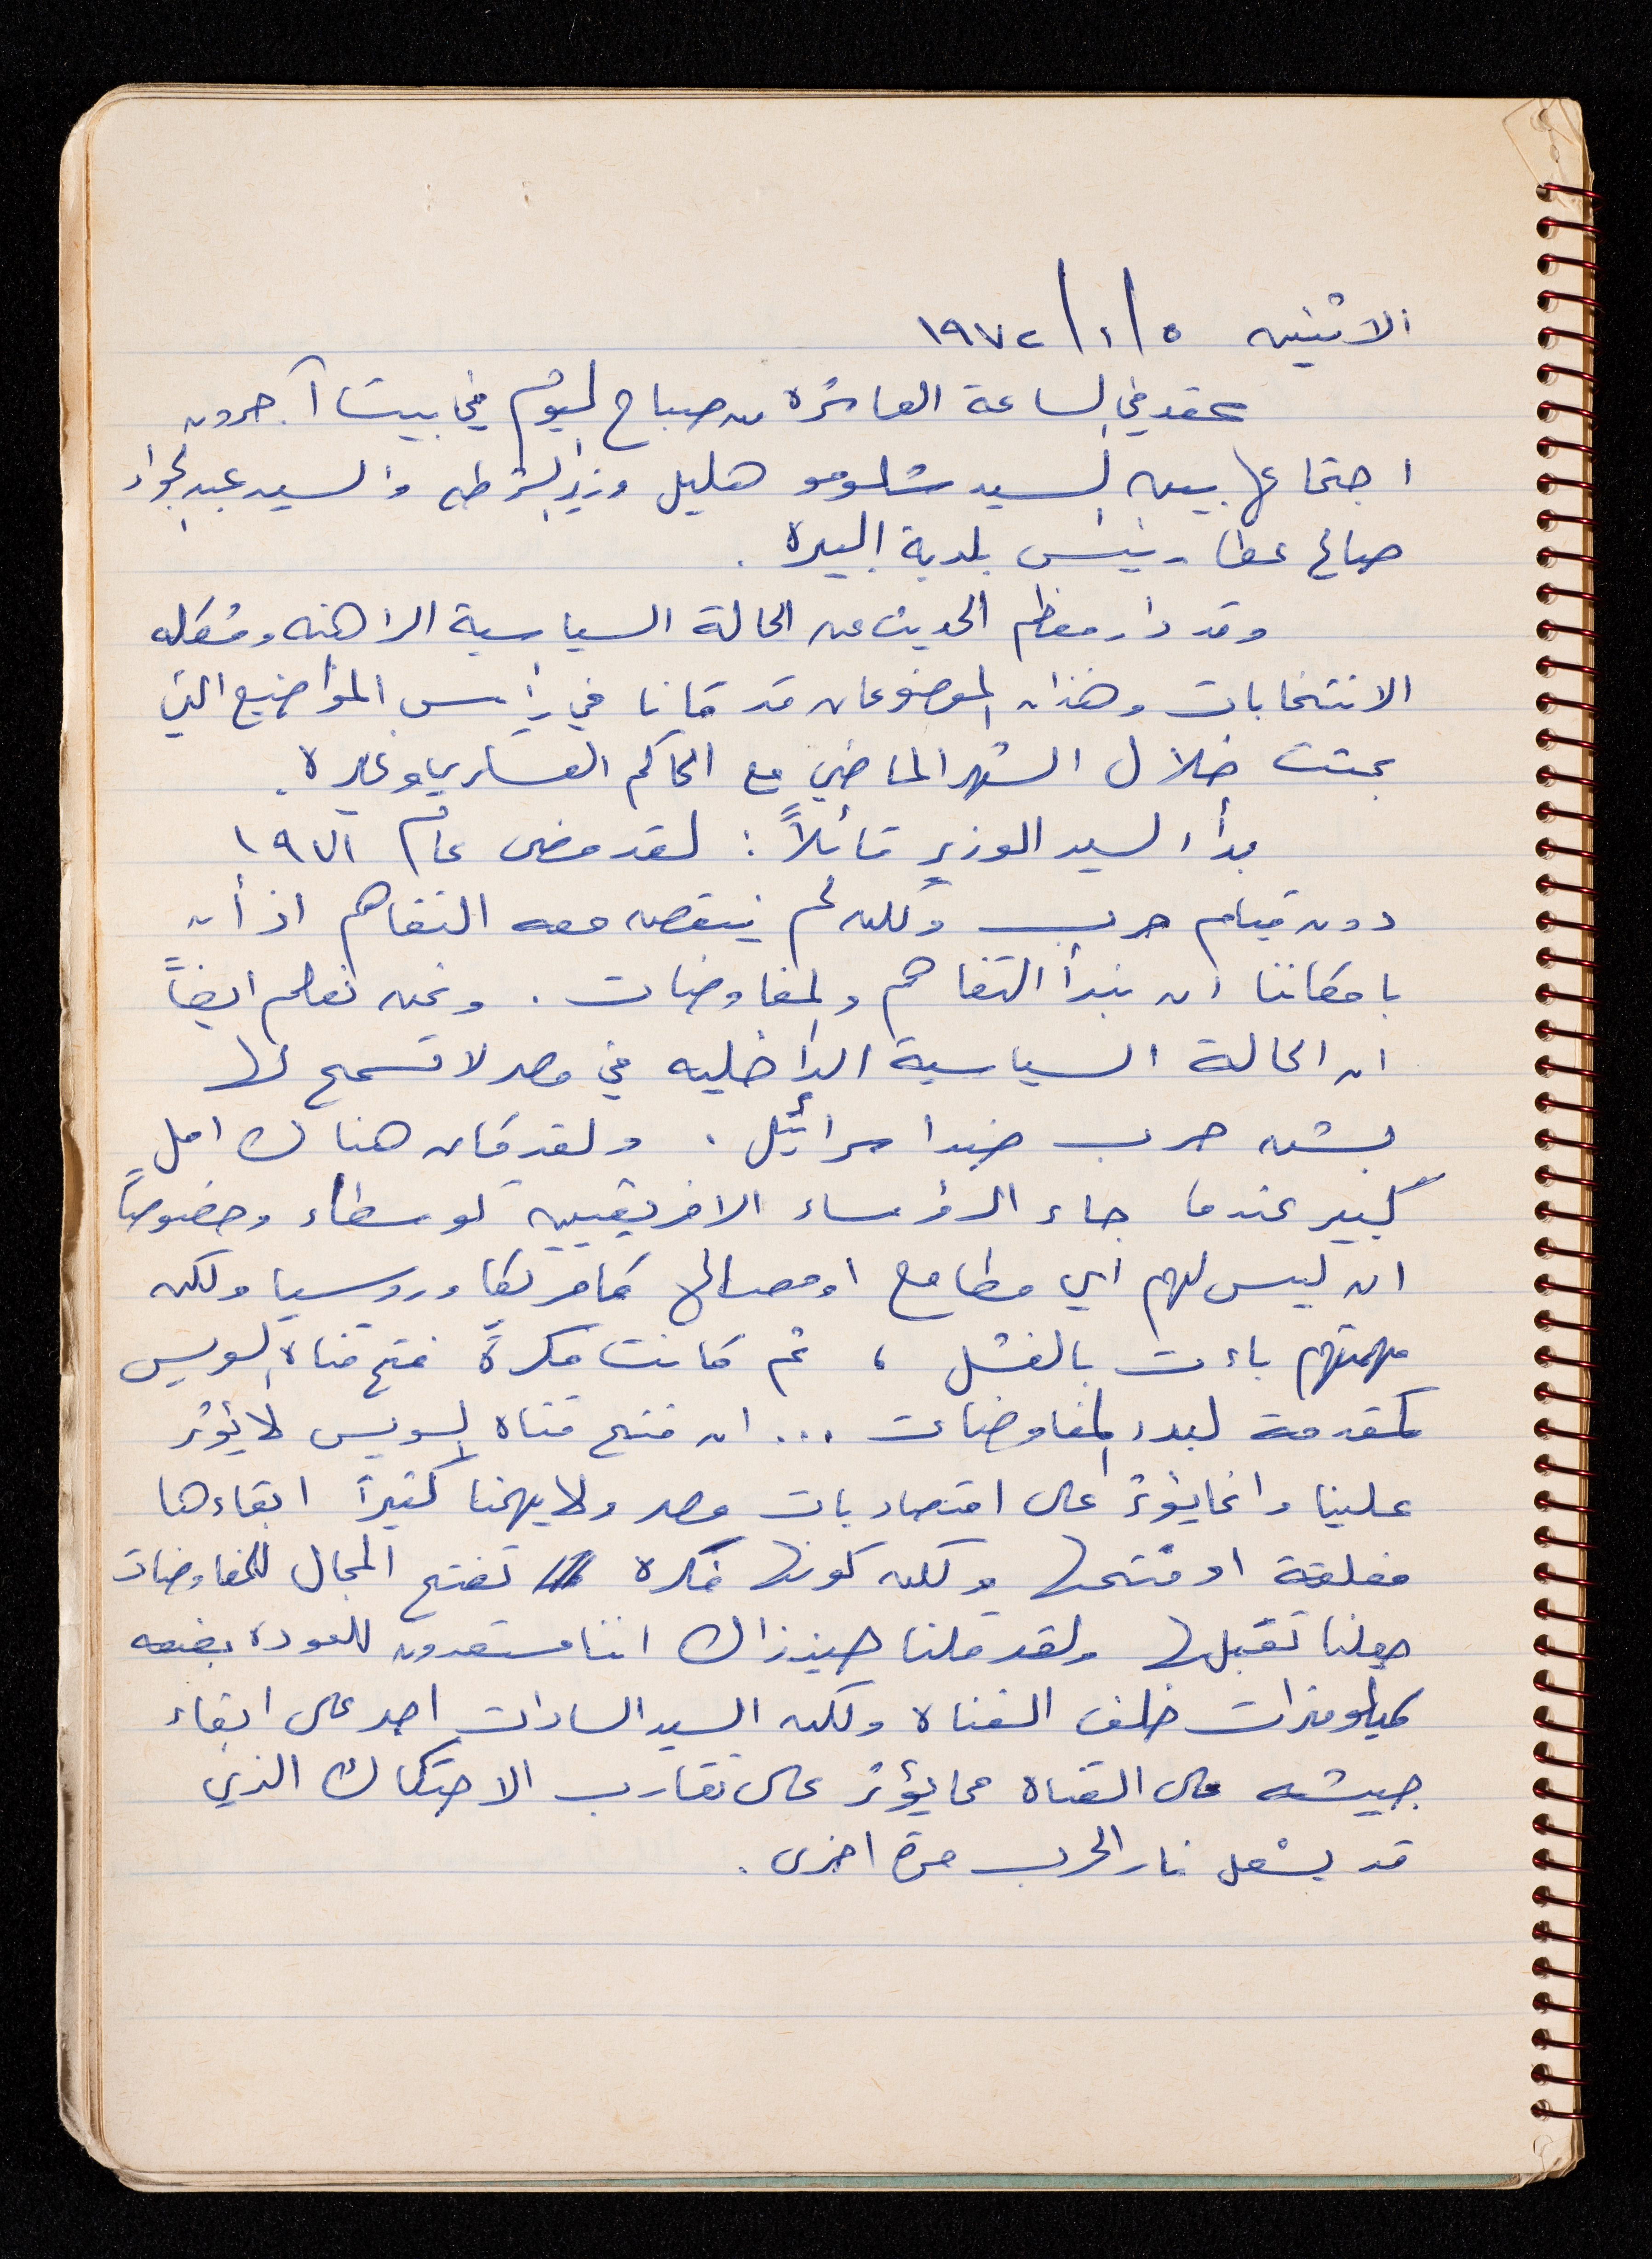 الاثنين ٥/١/١٩٧٢
عقد في الساعة العاشرة من صباح اليوم في بيت آجرون
اجتماعا بين السيد شلومو هليل وزير الشرطه والسيد عبد الجواد
صالح عطا رئيس بلدية البيرة .
وقد دار معظم الحديث عن الحالة السياسية الراهنه ومشكله
الانتخابات وهذان الموضوعان قد كانا في رأس المواضيع التي
بحثت خلال الشهر الماضي مع الحاكم العسكري وغيره .
بدأ السيد الوزير قائلاً : لقد مضى عام ١٩٧١
دون قيام حرب ولكن لم ينقصه معه التفاهم اذ أن
بامكاننا ان نبدأ التفاهم والمفاوضات . ونحن نعلم ايضاً
ان الحالة السياسية الداخليه في مصر لا تسمح لها
بشن حرب ضد اسرائيل . ولقد كان هناك امل
كبير عندما جاء الرؤساء الافريقيين كوسطاء وخصوصاً
ان ليس لهم اي مطامع او مصالح كامريكا وروسيا ولكن
مهمتهم باءت بالفشل ، ثم كانت فكرة فتح قناة السويس
كمقدمة لبدء المفاوضات ... ان فتح قناه السويس لا يؤثر
علينا وانما يؤثر على اقتصاديات مصر ولا يهمنا كثيراً ابقاءها
مغلقة او فتحها ولكن كونها فكره تفتح المجال للمفاوضات
جعلنا نقبلها ولقد قلنا حينذاك اننا مستعدون للعودة بضعه
كيلومترات خلف القناة ولكن السيد السادات اصر على ابقاء
جيشه على القناة مما يؤثر على تقارب الاحتكاك الذي
قد يشعل نار الحرب مرة اخرى .